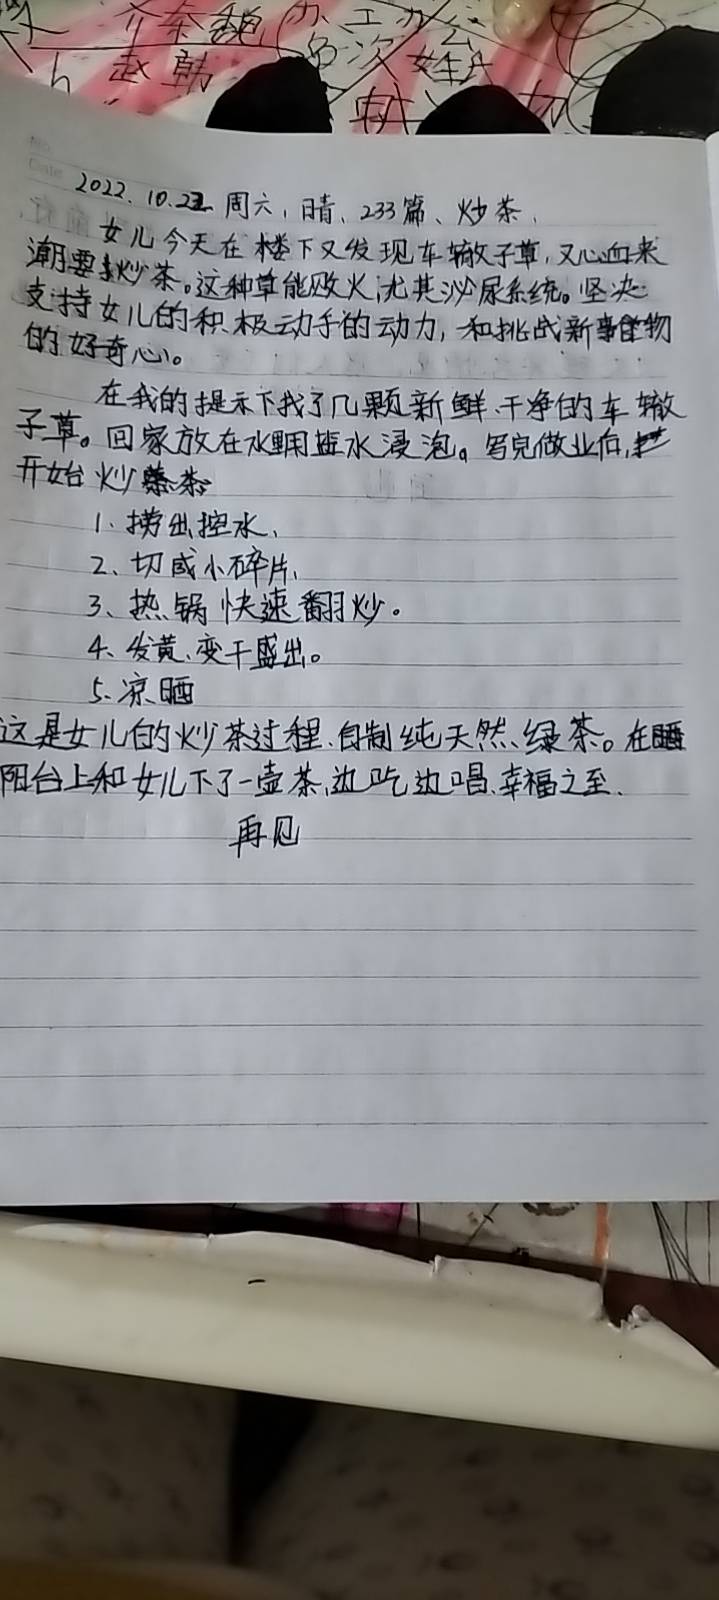 介 秦 魏
赵 韩
2022.10.22 周六,晴、233篇、炒茶,
女儿今天在楼下又发现车辙子草,又心血来
潮要炒茶。这种草能败火,尤其泌尿系统。坚决
支持女儿的积极动手的动力,和挑战新事物
的好奇心。
在我的提示下找了几颗新鲜、干净的车辙
子草。回家放在水里用盐水浸泡。写完做业后,
开始炒茶
1、捞出控水、
2、切成小碎片、
3、热锅快速翻炒。
4、发黄、变干盛出。
5、凉晒
这是女儿的炒茶过程、自制纯天然、绿茶。在晒
阳台上和女儿下了一壶茶,边吃边喝、幸福之至.
再见